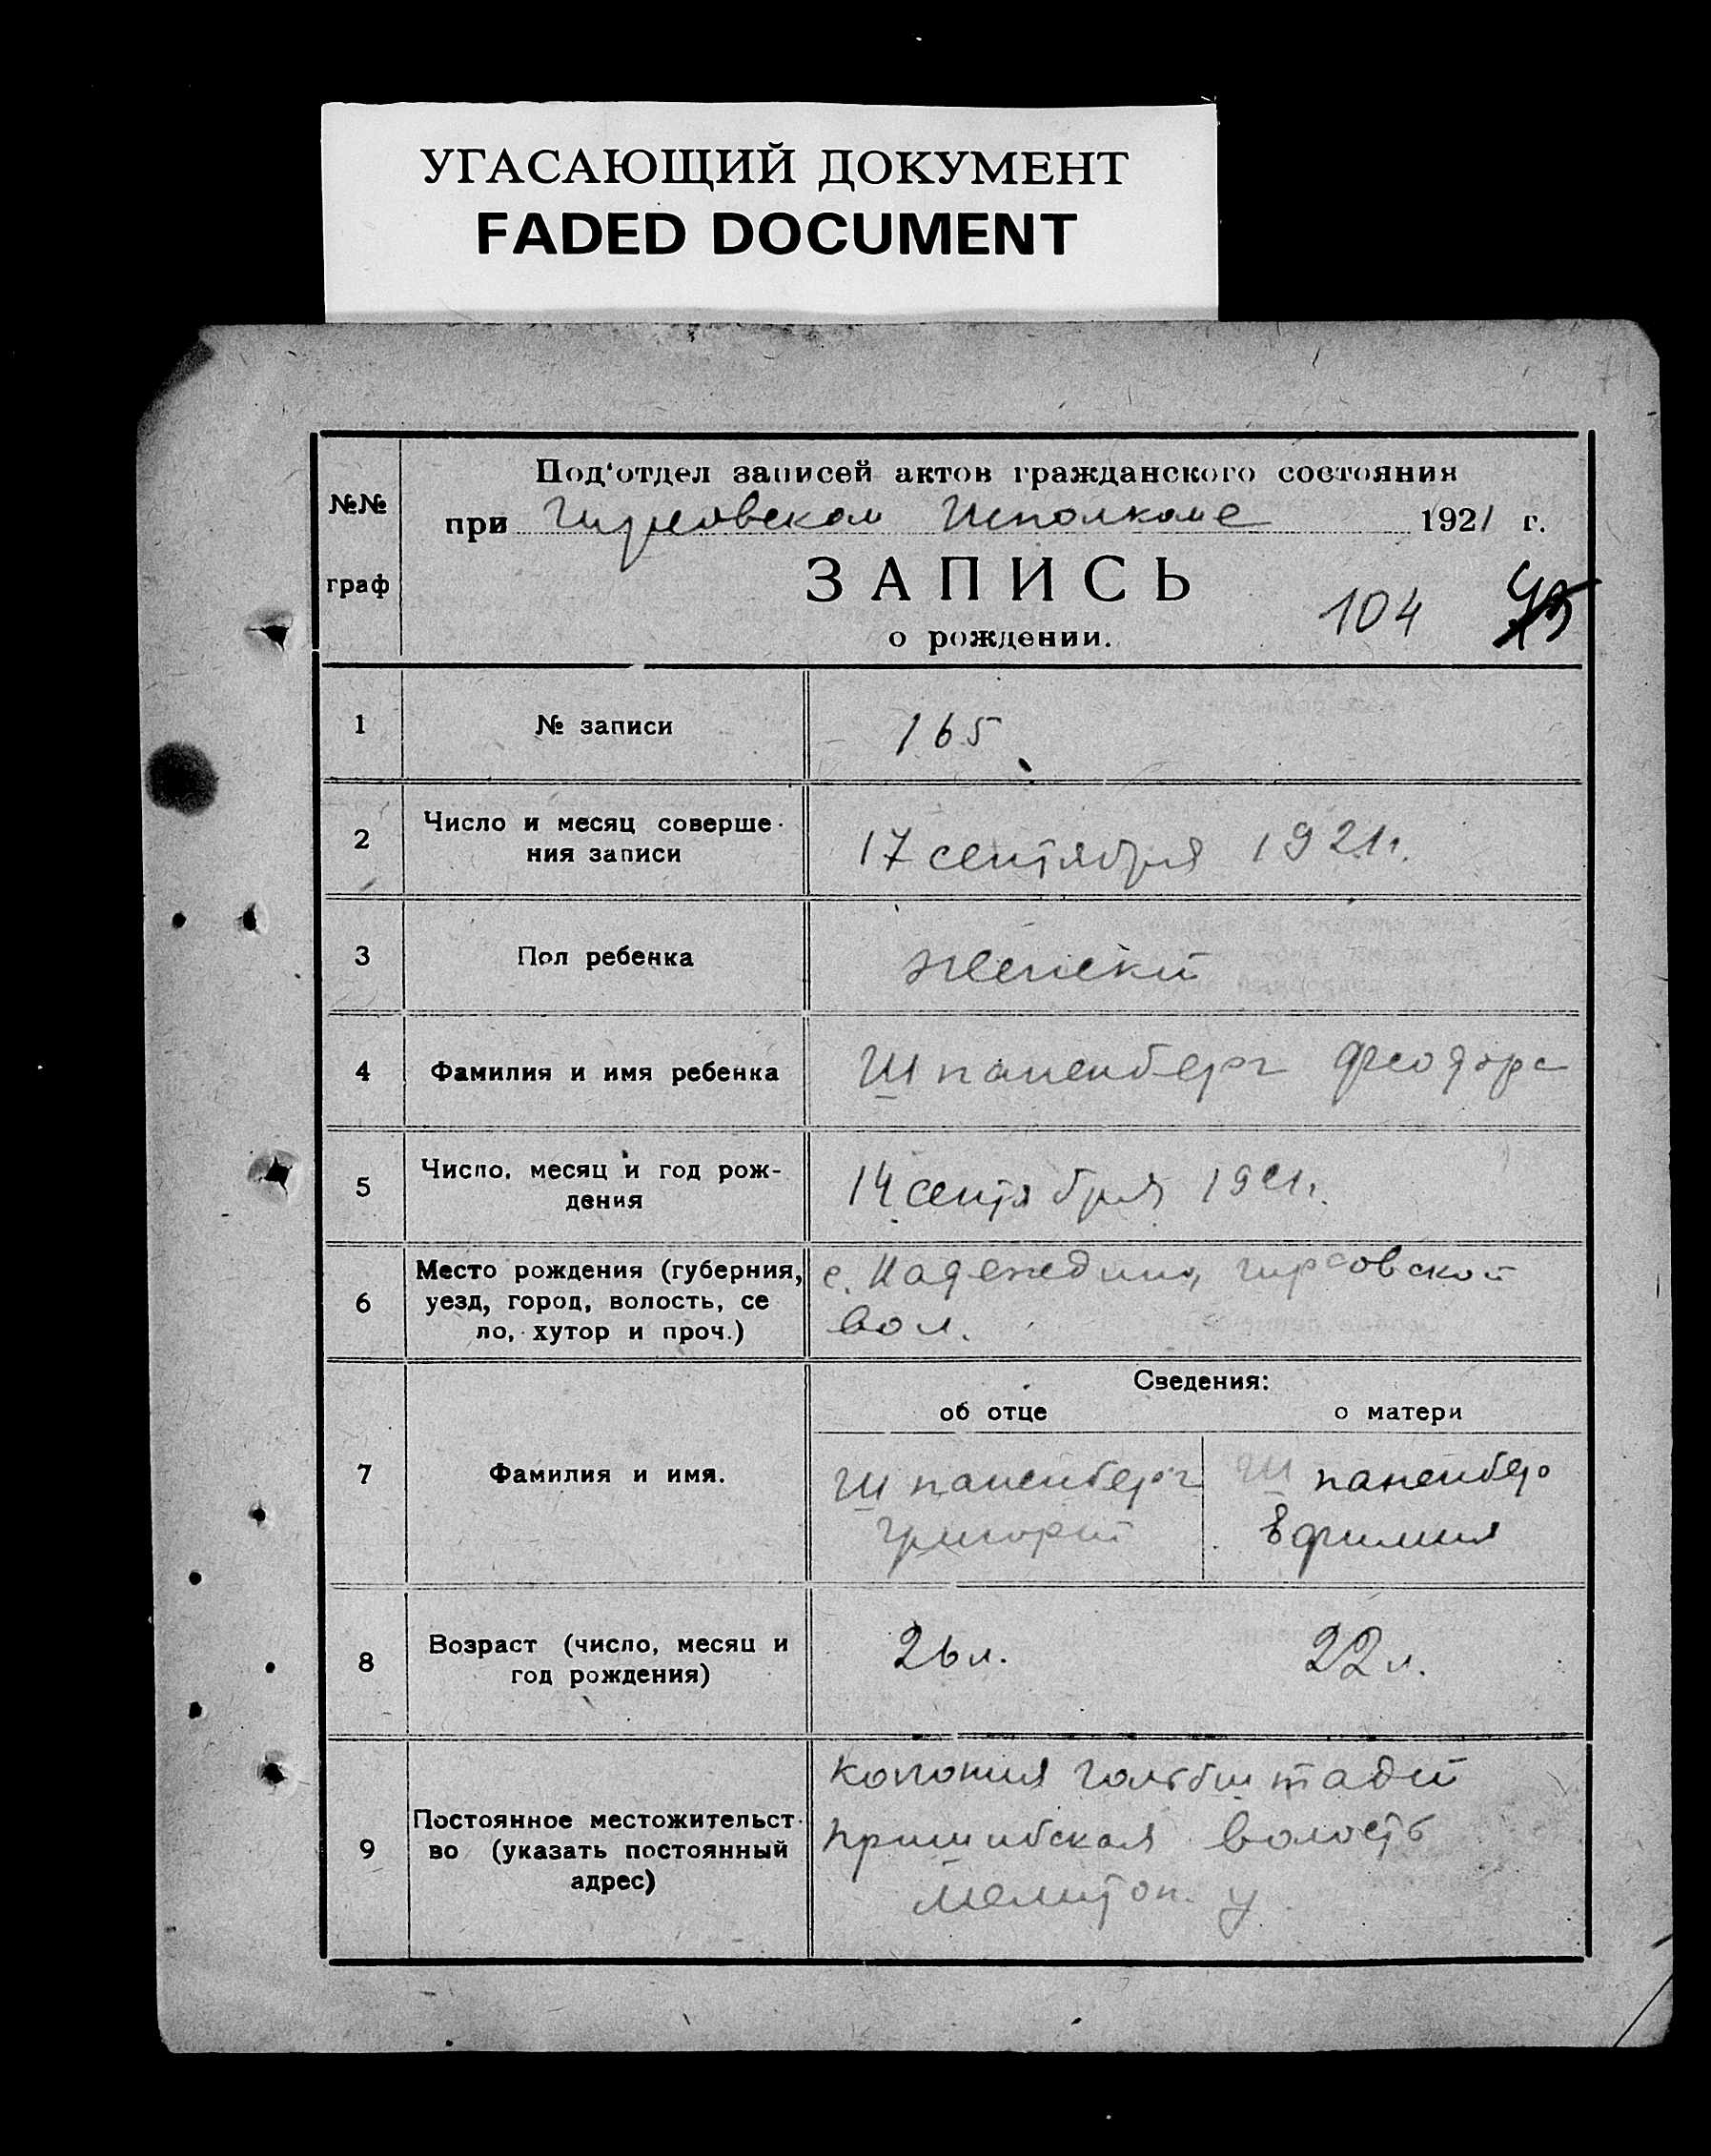 УГАСАЮЩИЙ ДОКУМЕНТ
FADED DOCUMENT
№№
граф
Под'отдел записей актов гражданского состояния
при Гирсовском Исполкоме 1921 г.
ЗАПИСЬ
о рождении.
104
1 № записи 165
2 Число и месяц соверше-
ния записи
17 сентября 1921 г.
3 Пол ребенка женский
4 Фамилия и имя ребенка Шпаненберг Феодора
5 Число, месяц и год рож-
дения
14 сентября 1921 г.
6 Место рождения (губерния,
уезд, город, волость, се
ло, хутор и проч.)
с. Надеждино, Гирсовской
вол.
Сведения:
об отце о матери
7 Фамилия и имя.
Шпаненберг
Григорий
Шпаненберг
Ефимия
8 Возраст (число, месяц и
год рождения)
26 л. 22 л.
9 Постоянное местожительст-
во (указать постоянный
адрес)
колония Гольбштадт
Пришибская волость
Мелитоп. у